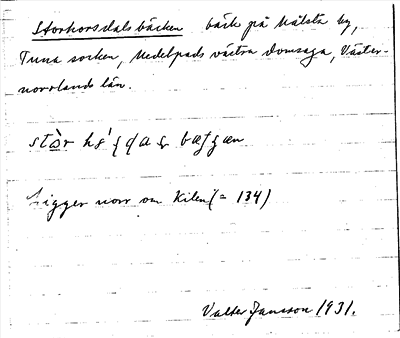 Storkorsdalsbäcken bäck på Målsta by,
Tuna socken, Medelpads västra domsaga, Väster-
norrlands län.
Ligger norr om Kilen (= 134)
Valter Jansson 1931.